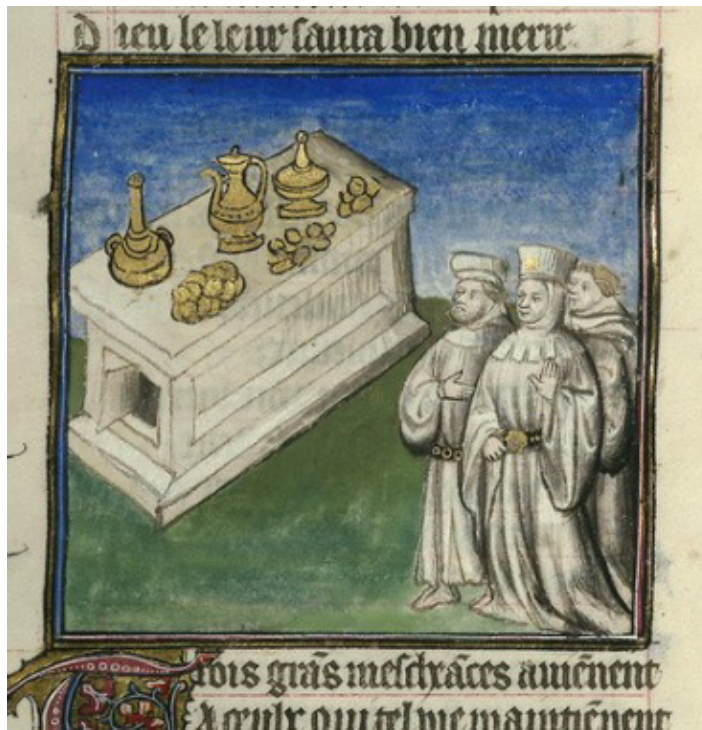 Dieu le leur saura bien merir
Trois grās meschāces aviēnent
A ceulx qui tel vie maintiēnent